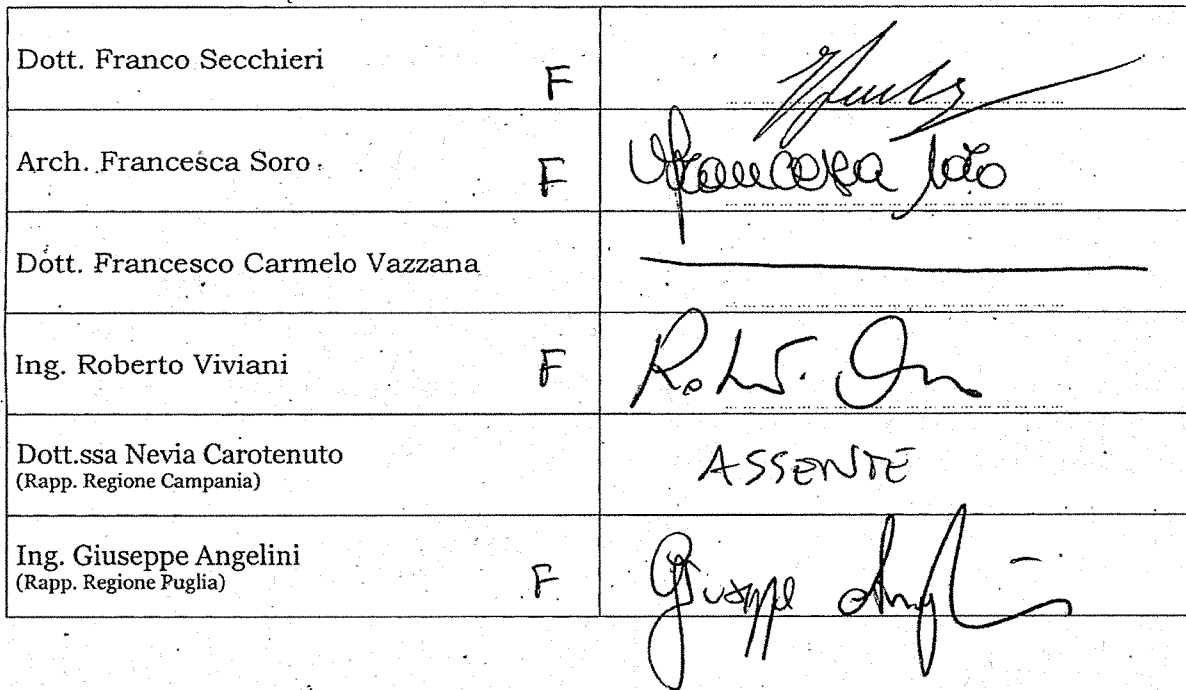 Dott. Franco Secchieri F
Arch. Francesca Soro F Francesca Soro
Dott. Francesco Carmelo Vazzana
Ing. Roberto Viviani F
Dott.ssa Nevia Carotenuto ASSENTE
(Rapp. Regione Campania)
Ing. Giuseppe Angelini Giuseppe Angelini
(Rapp. Regione Puglia) F